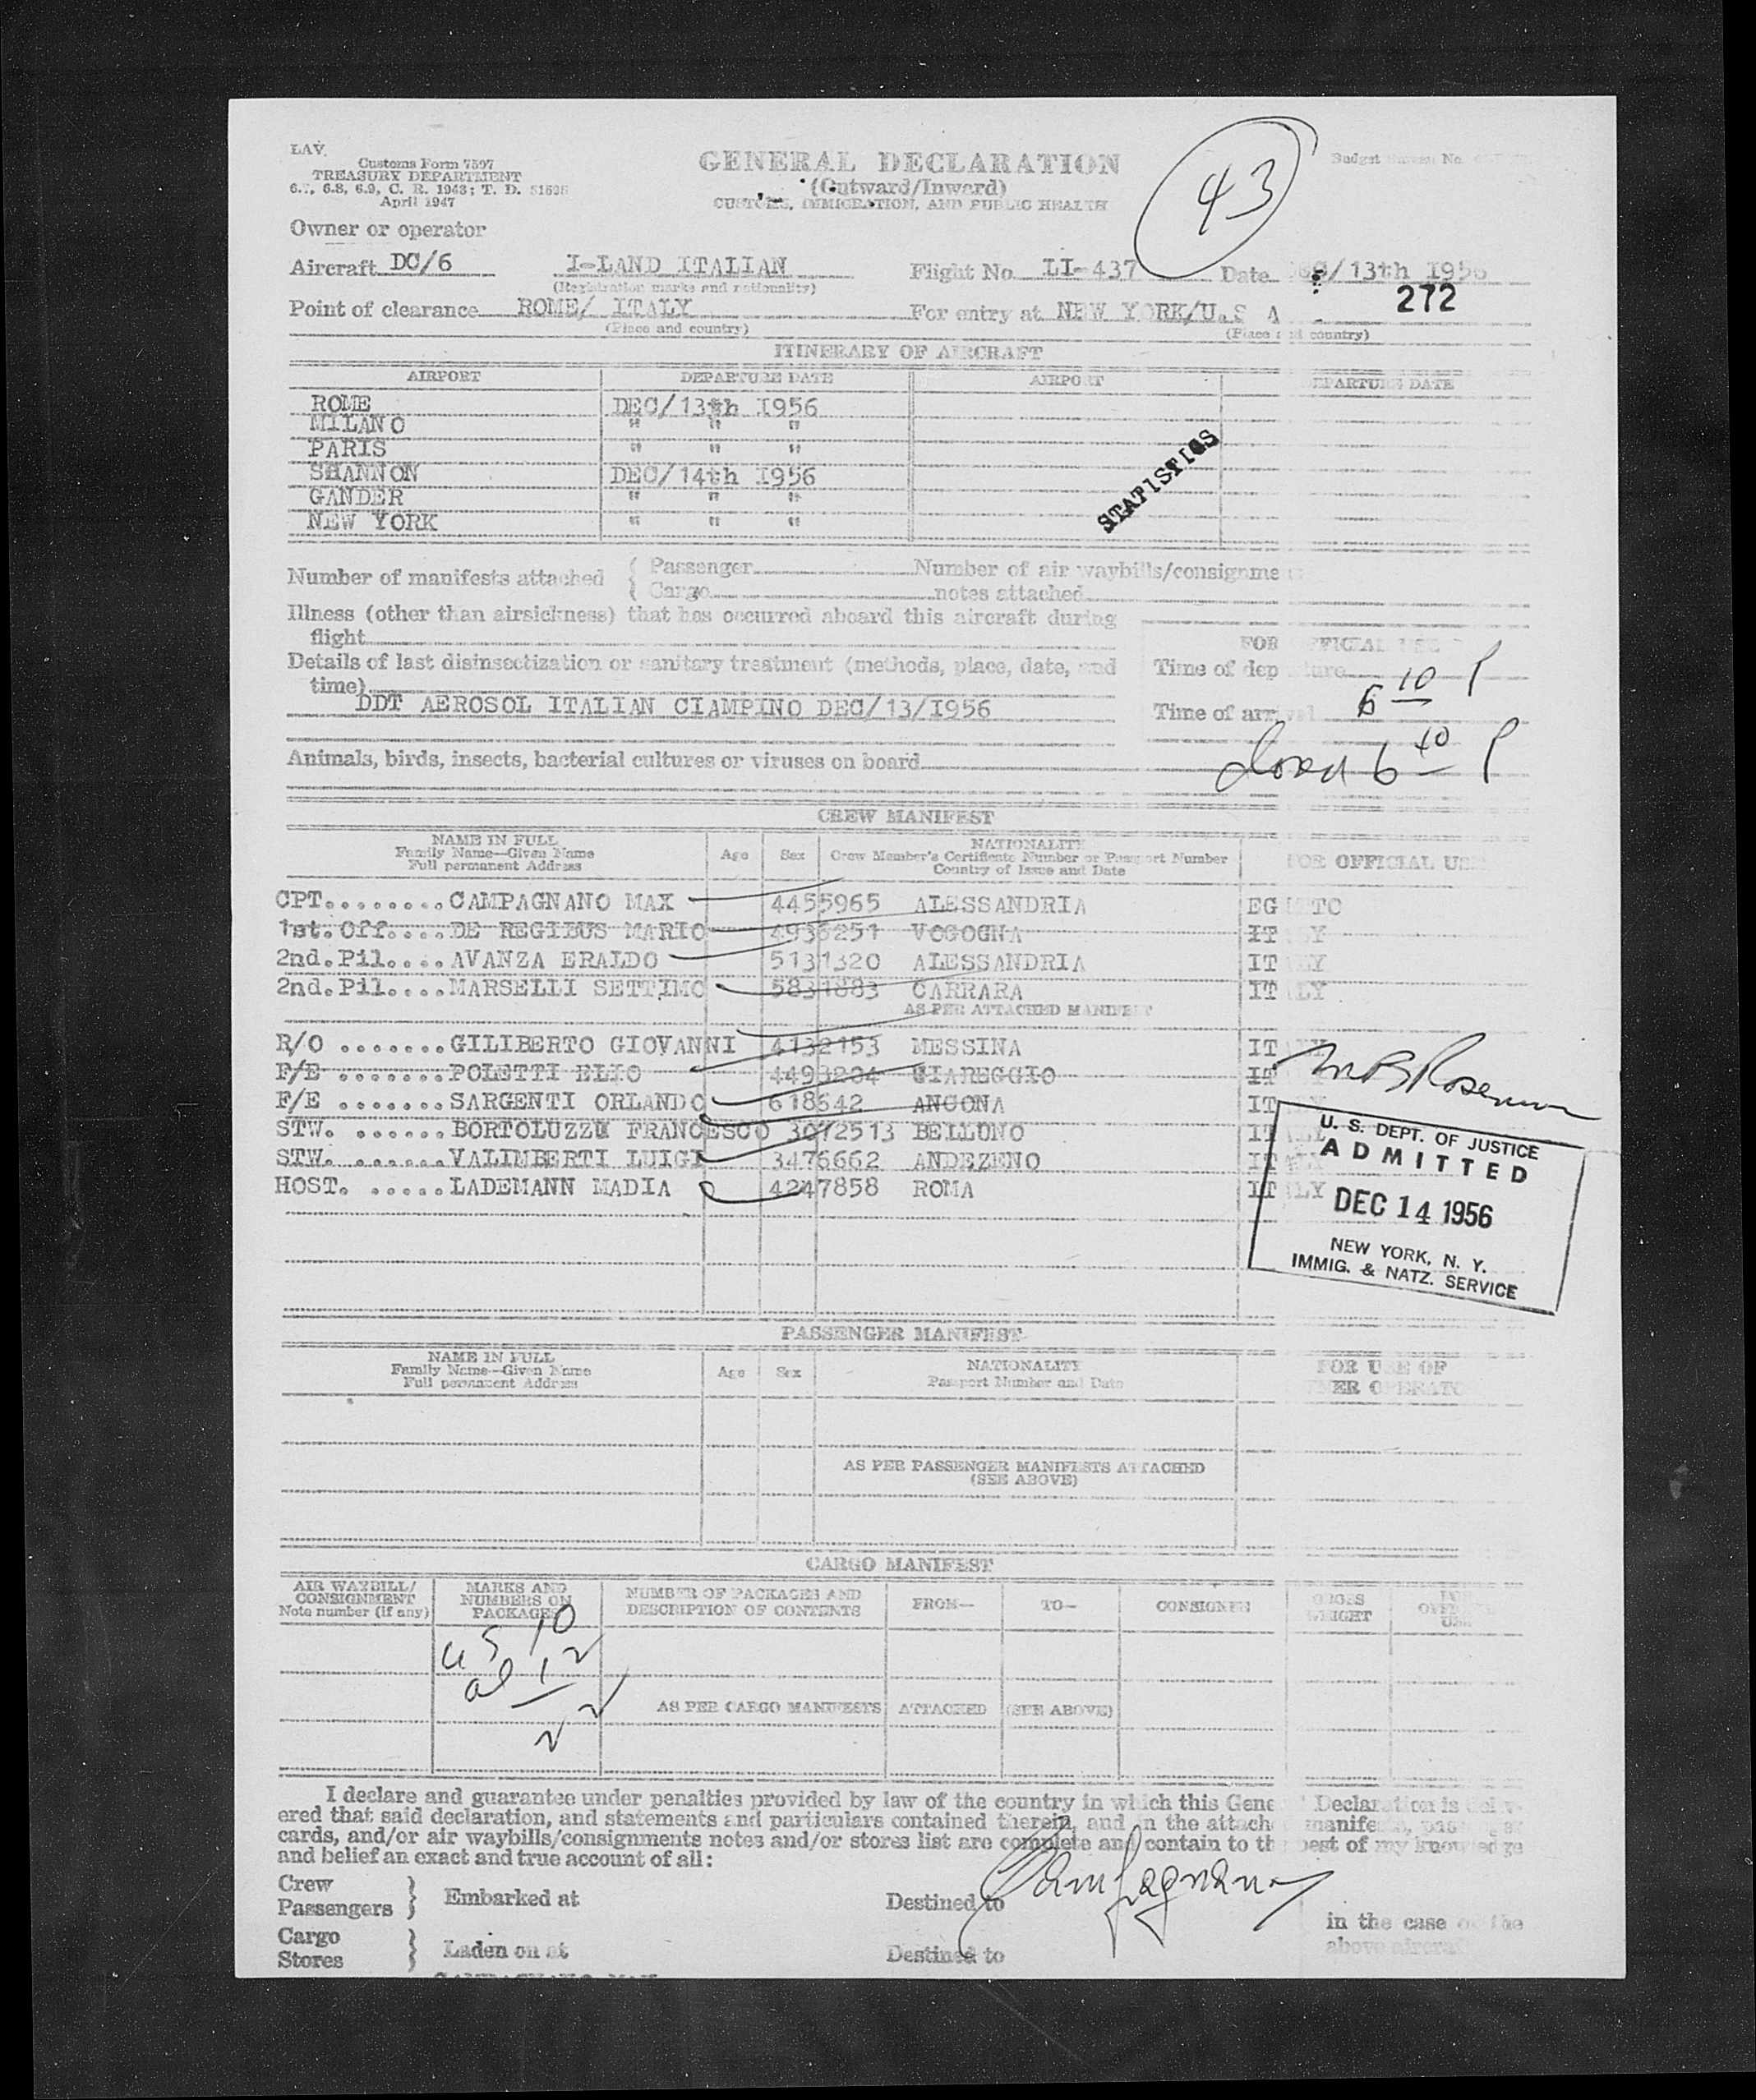 LAV.
Customs Form 7507
TREASURY DEPARTMENT
6.7, 6.8, 6.9, C. R. 1943; T. D. 51595
April 1947
GENERAL DECLARATION
(Outward/Inward)
CUSTOMS, IMMIGRATION, AND PUBLIC HEALTH
43
Budget Bureau No.
Owner or operator
Aircraft DC/6 I-LAND ITALIAN Flight No. LI-437 Date /13th I956
(Registration marks and nationality)
272
Point of clearance ROME/ ITALY For entry at NEW YORK/U.S A
(Place and country) (Place and country)
ITINERARY OF AIRCRAFT
AIRPORT DEPARTURE DATE AIRPORT DEPARTURE DATE
ROME DEC/13th I956
MILANO " " "
PARIS " " "
SHANNON DEC/14th I956
GANDER " " "
NEW YORK " " "
STATISTICS
Number of manifests attached { Passenger Number of air waybills/consignment
{ Cargo notes attached
Illness (other than airsickness) that has occurred aboard this aircraft during
flight
FOR OFFICIAL USE
Details of last disinsectization or sanitary treatment (methods, place, date, and
time)
Time of departure
DDT AEROSOL ITALIAN CIAMPINO DEC/13/I956
Time of arrival 6 10 P
Animals, birds, insects, bacterial cultures or viruses on board
6 40 P
CREW MANIFEST
NAME IN FULL
Family Name—Given Name
Full permanent Address
Age Sex
NATIONALITY
Crew Member's Certificate Number or Passport Number
Country of Issue and Date
FOR OFFICIAL USE
CPT........CAMPAGNANO MAX 4455965 ALESSANDRIA EGITTO
1st.Off....DE REGIBUS MARIO 4936251 VOGOGNA ITALY
2nd.Pil....AVANZA ERALDO 5131320 ALESSANDRIA ITALY
2nd.Pil....MARSELLI SETTIMO 5831883 CARRARA ITALY
AS PER ATTACHED MANIFEST
R/O .......GILIBERTO GIOVANNI 4132153 MESSINA ITALY
F/E .......POLETTI ELIO 4493204 VIAREGGIO IT
F/E .......SARGENTI ORLANDO 618642 ANCONA IT
STW. ......BORTOLUZZI FRANCESCO 3072513 BELLUNO IT
STW. .......VALIMBERTI LUIGI 3476662 ANDEZENO IT
HOST. .....LADEMANN MADIA 4247858 ROMA ITALY
U. S. DEPT. OF JUSTICE
ADMITTED
DEC 14 1956
NEW YORK, N. Y.
IMMIG. & NATZ. SERVICE
PASSENGER MANIFEST
NAME IN FULL
Family Name—Given Name
Full permanent Address
Age Sex
NATIONALITY
Passport Number and Date
FOR USE OF
OWNER OPERATOR
AS PER PASSENGER MANIFESTS ATTACHED
(SEE ABOVE)
CARGO MANIFEST
AIR WAYBILL/
CONSIGNMENT
Note number (if any)
MARKS AND
NUMBERS ON
PACKAGES
NUMBER OF PACKAGES AND
DESCRIPTION OF CONTENTS
FROM— TO— CONSIGNEE
GROSS
WEIGHT
US 10
al 12
22
AS PER CARGO MANIFESTS ATTACHED (SEE ABOVE)
I declare and guarantee under penalties provided by law of the country in which this General Declaration is deliv-
ered that said declaration, and statements and particulars contained therein, and in the attached manifests, passenger
cards, and/or air waybills/consignments notes and/or stores list are complete and contain to the best of my knowledge
and belief an exact and true account of all:
Campagnano
Crew
Passengers } Embarked at Destined to
in the case of the
above aircraft
Cargo
Stores } Laden on at Destined to